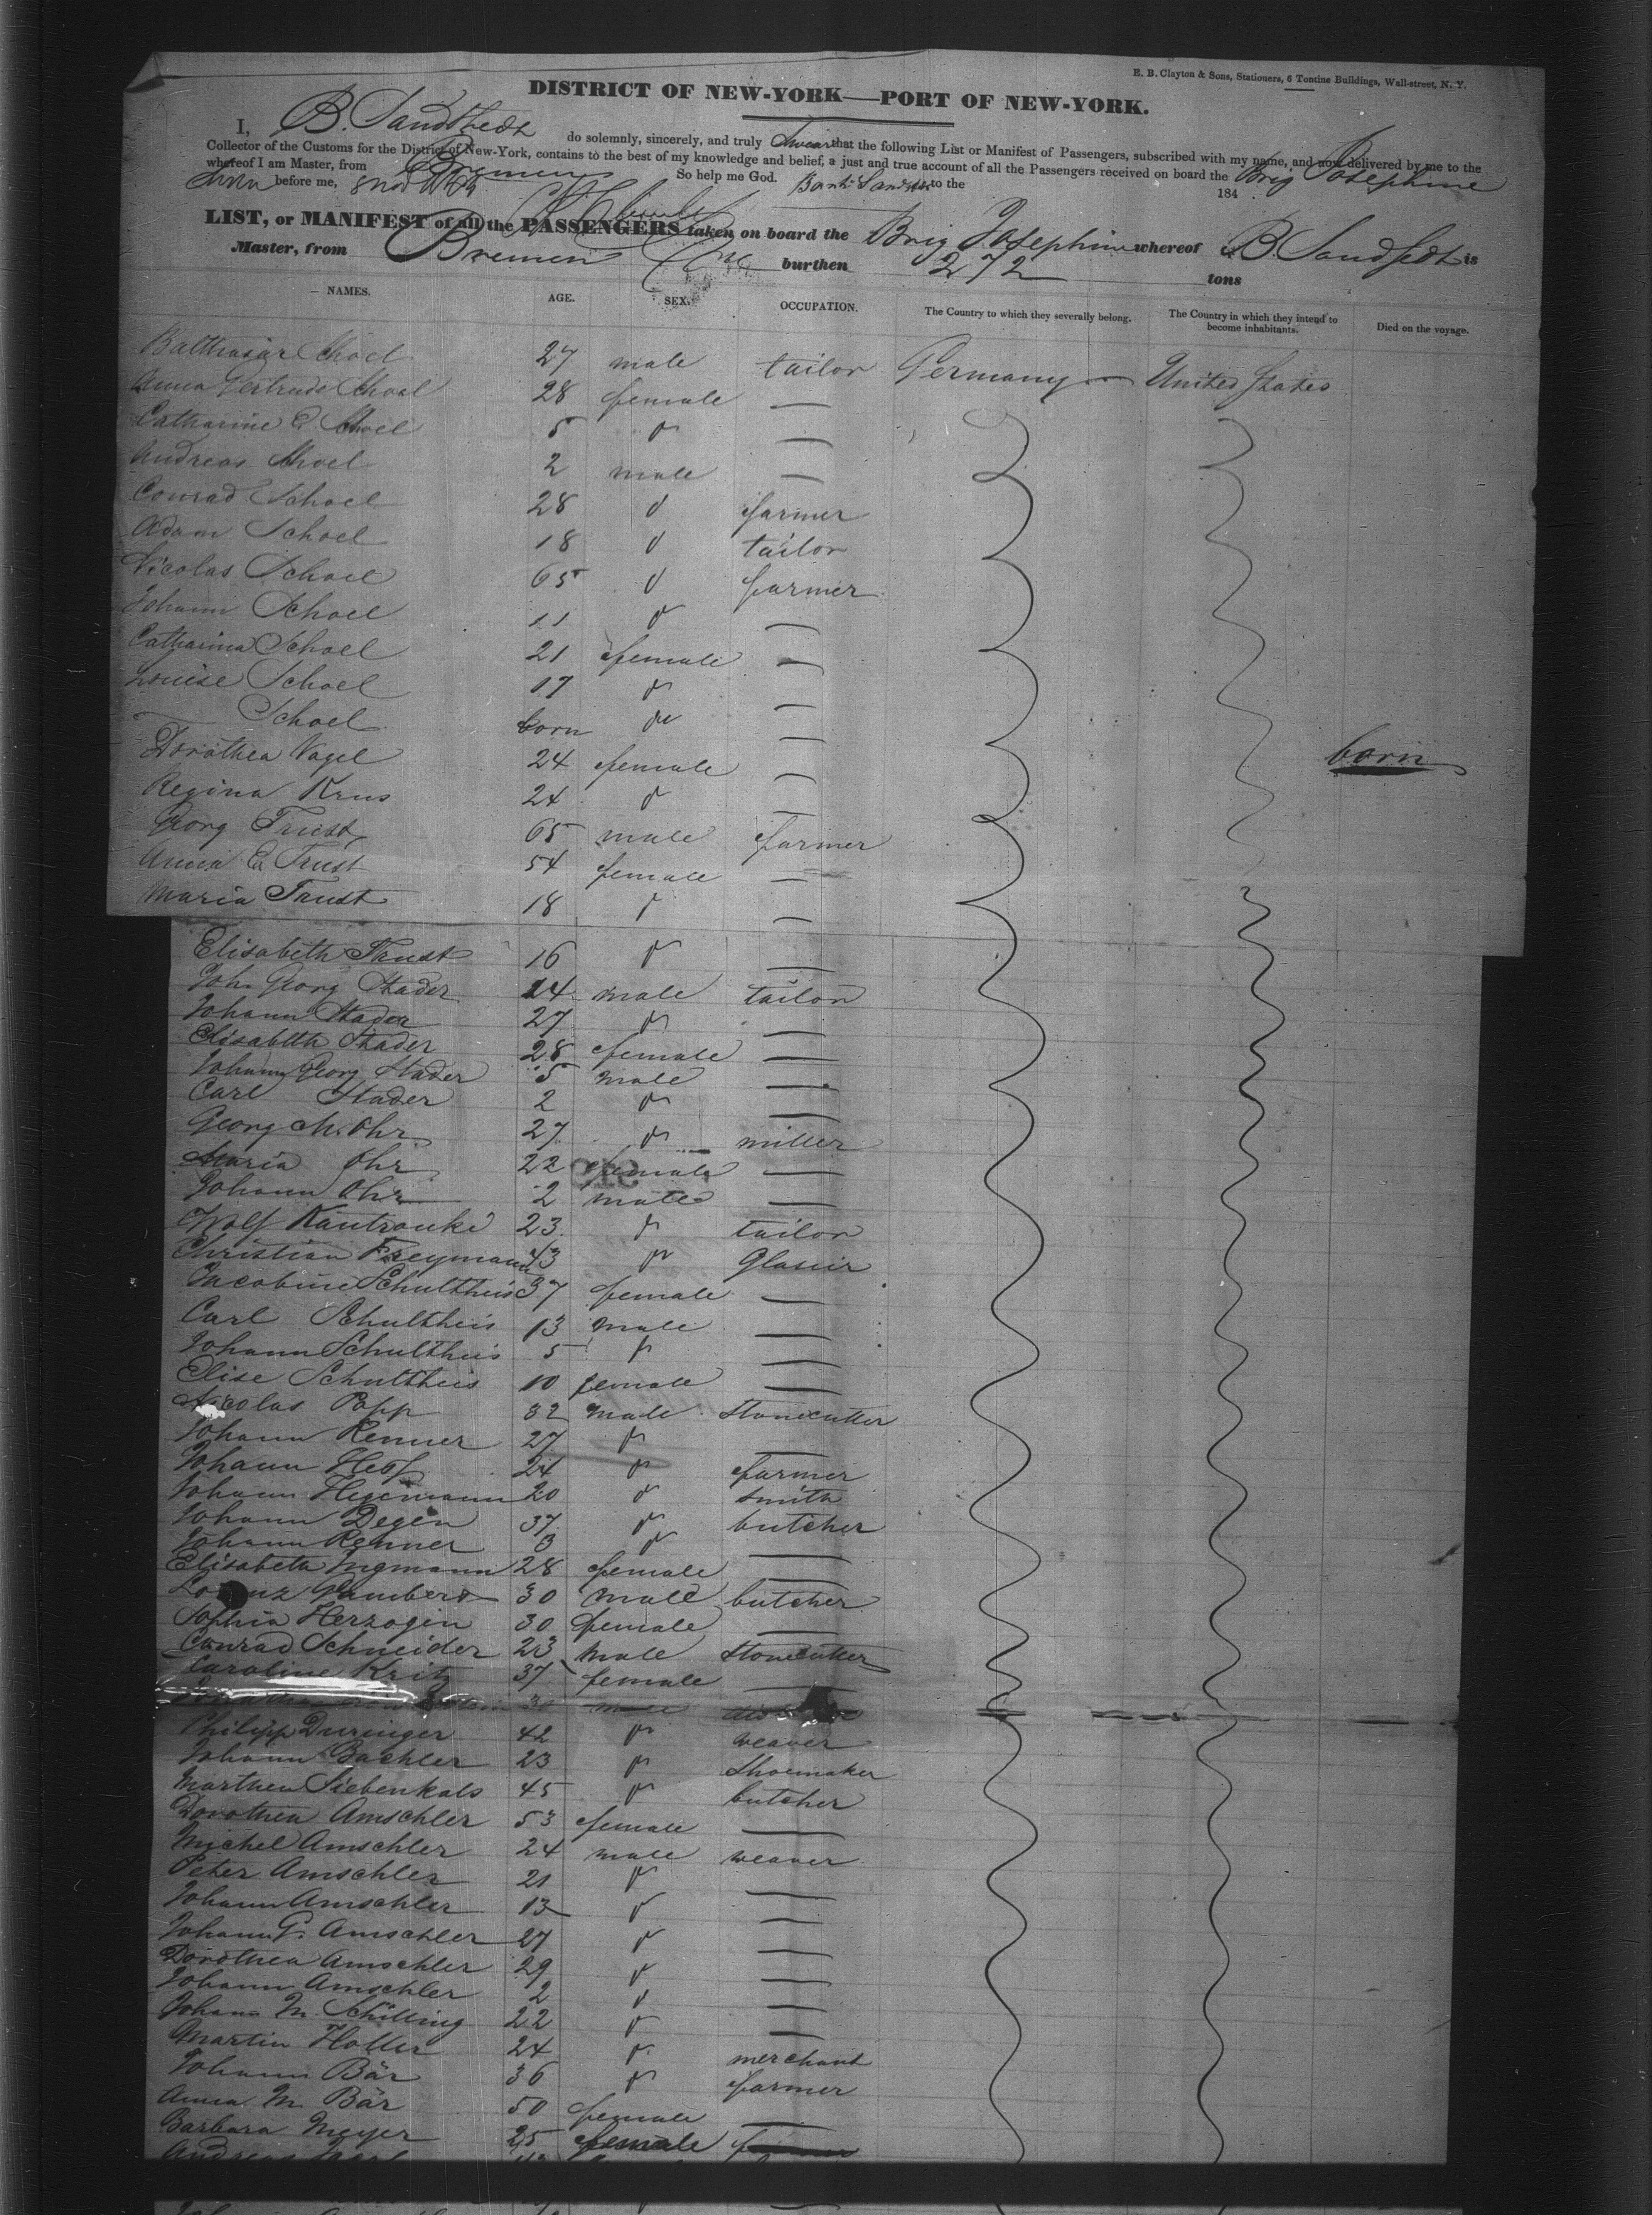 E. B. Clayton & Sons, Stationers, 6 Tontine Buildings, Wall-street, N. Y.
DISTRICT OF NEW-YORK—PORT OF NEW-YORK.
I, B. Sandstedt do solemnly, sincerely, and truly Swear that the following List or Manifest of Passengers, subscribed with my name, and now delivered by me to the
Collector of the Customs for the District of New-York, contains to the best of my knowledge and belief, a just and true account of all the Passengers received on board the Brig Josephine
whereof I am Master, from Bremen So help me God.
Sworn before me, to the 184
LIST, or MANIFEST of all the PASSENGERS taken on board the Brig Josephine whereof B. Sandstedt is
Master, from Bremen burthen 272 tons
NAMES. AGE. SEX. OCCUPATION. The Country to which they severally belong. The Country in which they intend to become inhabitants. Died on the voyage.
Balthasar Schoel 27 male tailor Germany — United States
Anna Gertrude Schoel 28 female —
Catharine E Schoel 5 " —
Andreas Schoel 2 male —
Conrad Schoel 28 " farmer
Adam Schoel 18 " tailor
Nicolas Schoel 65 " farmer
Johann Schoel 11 " —
Catharina Schoel 21 female —
Louise Schoel 17 " —
— Schoel born — born
Dorothea Vogel 24 female —
Regina Krus 24 " —
Georg Trust 65 male farmer
Anna E Trust 54 female —
Maria Faust 18 " —
Elisabeth Faust 16 " —
Joh. Georg Stader 24 male tailor
Johann Stader 27 " —
Elisabeth Stader 28 female —
Johann Georg Stader 5 male —
Carl Stader 2 " —
Georg M. Ohr 27 " miller
Maria Ohr 22 female —
Johann Ohr 2 male —
Wolf Kautrouki 23 " tailor
Christian Freymann 43 " Glasier
Jacobine Schultheis 37 female —
Carl Schultheis 13 male —
Johann Schultheis 5 " —
Elise Schultheis 10 female —
Nicolas Popp 32 male Stonecutter
Johann Renner 27 " —
Johann Hopf 24 " farmer
Johann Hegemann 20 " smith
Johann Degen 37 " butcher
Johann Renner 3 " —
Elisabeth Ingmann 28 female —
Gambert 30 male butcher
Sophia Herzogin 30 female —
Conrad Schneider 23 male Stonecutter
Caroline Kritz 37 female —
male
Philipp Duringer 42 " weaver
Johann Bachler 23 " Shoemaker
Marthen Siebenkals 45 " butcher
Dorothea Amschler 53 female —
Michel Amschler 24 male weaver
Peter Amschler 21 " —
Johann Amschler 13 " —
Johann G. Amschler 27 " —
Dorothea Amschler 29 " —
Johann Amschler 2 " —
Johann M. Schilling 22 " —
Martin Holler 24 " merchant
Johann Bär 36 " farmer
Anna M. Bär 50 female —
Barbara Meyer 25 female
Andreas